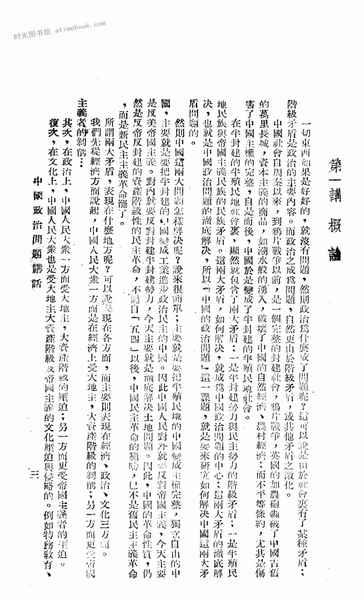 时光图书馆 atfreebook.com
第一講 概論
一切東西如果是好好的，就沒有問題，然則政治爲什麼成了問題呢？這可以說是由於社會裏有了某種矛盾；
階級矛盾是政治的主要內容。而政治之成爲問題，自然更由於階級矛盾，或其他矛盾之激化。
中國社會自周秦以來，到鴉片戰爭以前，是一個完整的封建社會，鴉片戰爭，英國的加農砲轟破了中國古舊
的萬里長城，資本主義的商品，如潮水般的湧入，破壞了中國的自然經濟，農村經濟；而不平等條約，尤其是傷
害了中國主權的完整。自是而後，中國於是變成了半封建的半殖民地社會。
在半封建的半殖民地社會裏，顯然就包含了兩大矛盾：一是半封建勢力與民主勢力的階級矛盾；一是半殖民
地民族與帝國主義民族的民族矛盾。這兩大矛盾，如何解決，就成爲中國政治問題的中心；這兩大矛盾的徹底解
決，也就是中國政治問題的徹底解決。所以「中國的政治問題」這一課題，就是要來研究如何解決中國這兩大矛
盾問題的。
然則中國這兩大問題怎樣解決呢？說來很簡單：主要就是要把半殖民地的中國變成主權完整，獨立自由的中
國，主要就是要把半封建的中國變成工業進步政治民主的中國。因此中國人民對外就要反對帝國主義，今天主要
是反美帝國主義。對內就要反對封建半封建勢力，今天主要就是徹底解決土地問題。因此，中國的革命性質，仍
然是反帝反封建的資產階級性的民主革命，不過自「五四」以後，中國民主革命的領導，已不是舊民主主義革命
，而是新民主主義革命罷了。
所謂兩大矛盾，表現在什麼地方呢？可以說表現在各方面，而主要則表現在經濟、政治、文化三方面。
我們先從經濟方面說起，中國人民大衆一方面是在經濟上受大地主，大資產階級的剝削；另一方面更受帝國
主義者的剝削……
其次，在政治上，中國人民大衆一方面受大地主，大資產階級的壓迫；另一方面更受帝國主義者的壓迫。
復次，在文化上，中國人民大衆也是受大地主大資產階級及帝國主義的文化壓迫與侵略的。例如特務教育、
中國政治問題講話
三